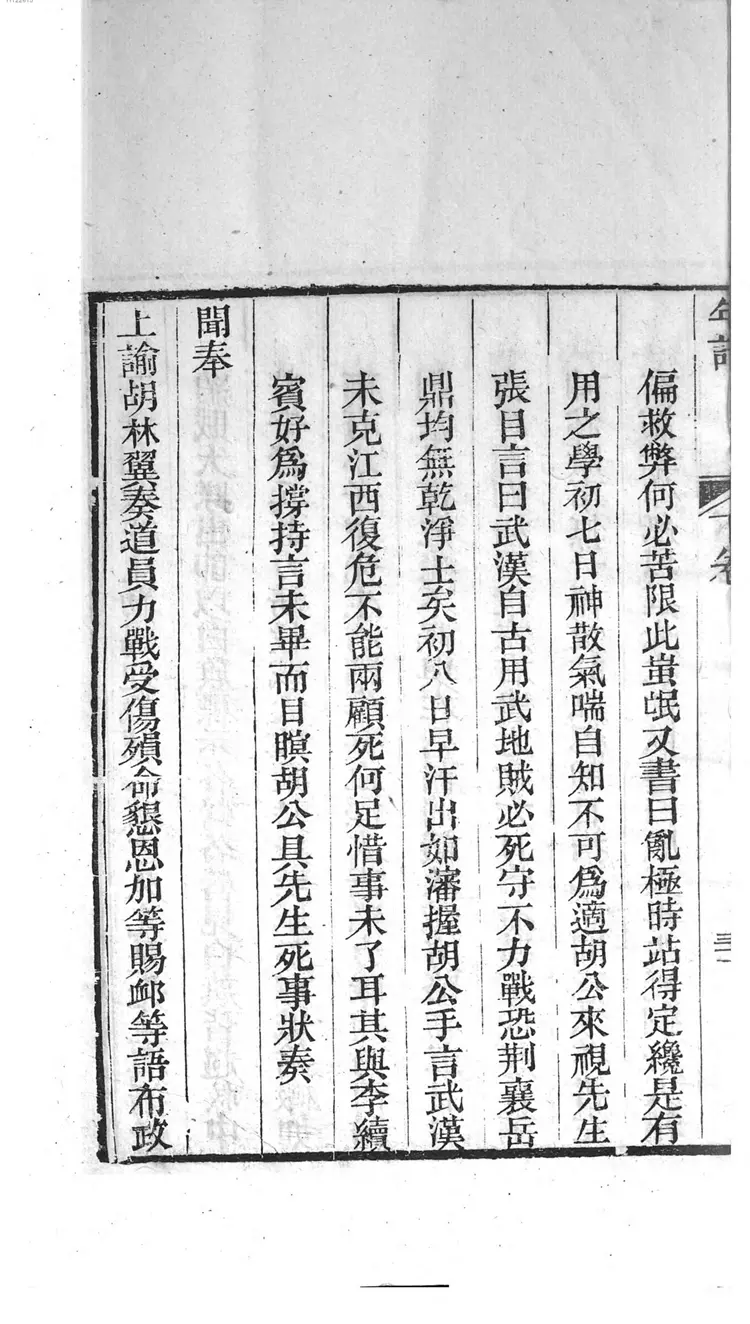 偏救弊何必苦限此蚩氓又書曰亂極時站得定纔是有
用之學初七日神散氣喘自知不可爲適胡公來視先生
張目言曰武漢自古用武地賊必死守不力戰恐荆襄岳
鼎均無乾淨土矣初八日早汗出如瀋握胡公手言武漢
未克江西復危不能兩顧死何足惜事未了耳其與李續
賓好爲撐持言未畢而目瞑胡公具先生死事狀奏
聞奉
上諭胡林翼奏道員力戰受傷殞命懇恩加等賜卹等語布政